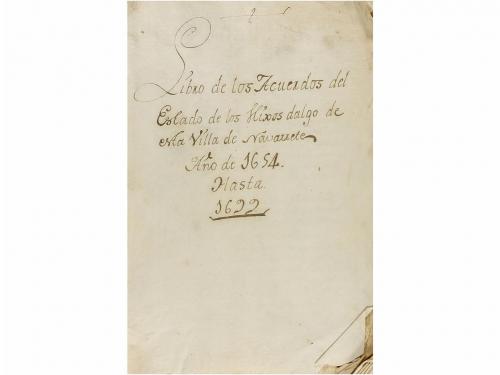 Libro de los Acuerdos del
Estado de los Hixos dalgo de
esta Villa de Navarrete
Año de 1654.
Hasta
1699